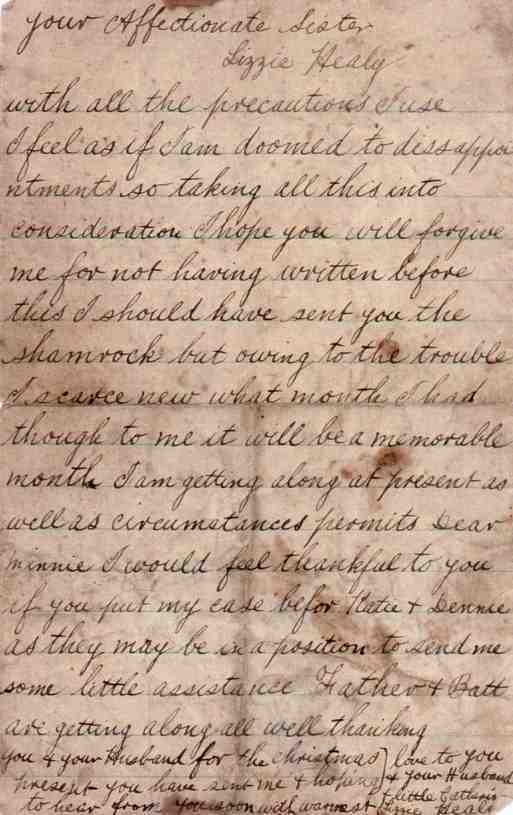 your Affectionate Sister
Lizzie Healy
with all the precautions I use
I feel as if I am doomed to dissappoi
ntments so taking all this into
consideration I hope you will forgive
me for not having written before
this I should have sent you the
shamrock but owing to the trouble
I scarce new what month I had
though to me it will be a memorable
month I am getting along at present as
well as circumstances permits Dear
Minnie I would feel thankful to you
if you put my case befor Katie & Dennie
as they may be in a position to send me
some little assistance Father & Batt
are getting along all well thanking
you & your Husband for the Christmas
present you have sent me & hoping
to hear from you soon with warmest
love to you
& your Husband
& little Catherin
Lizzie Healy